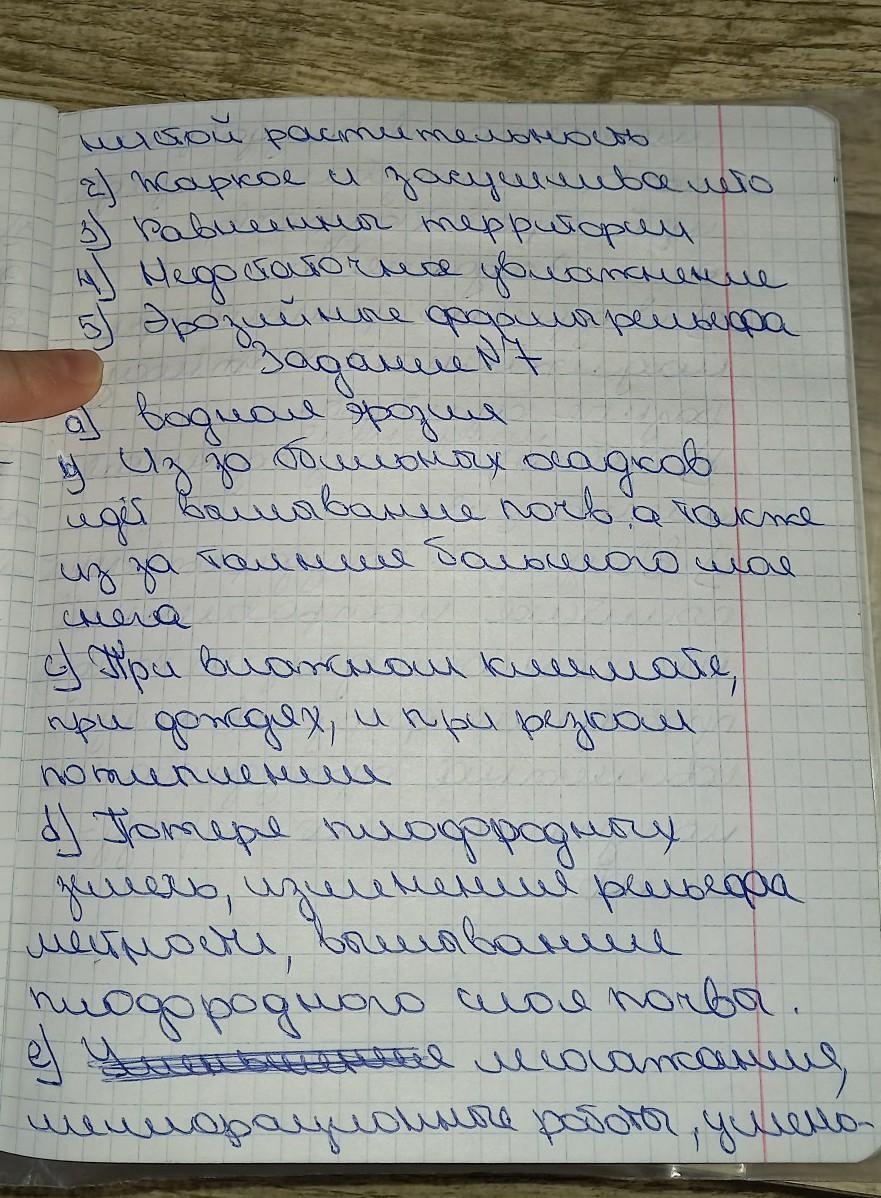 нистой растительность
2) Жаркое и засушливое лето
3) Равнинны территории
4) Недостаточное увлажнение
5) Эрозийные формы рельефа
Задание №7
a) водная эрозия
Из за больших осадков
идёт вымывание почв, а также
из за таяния большого слоя
снега
c) При влажном климате,
при дождях, и при резком
потеплении
d) Потеря плодородных
земель, изменения рельефа
местности, вымывание
плодородного слоя почвы.
e) лесосажания,
мелиорационные работы, умень-